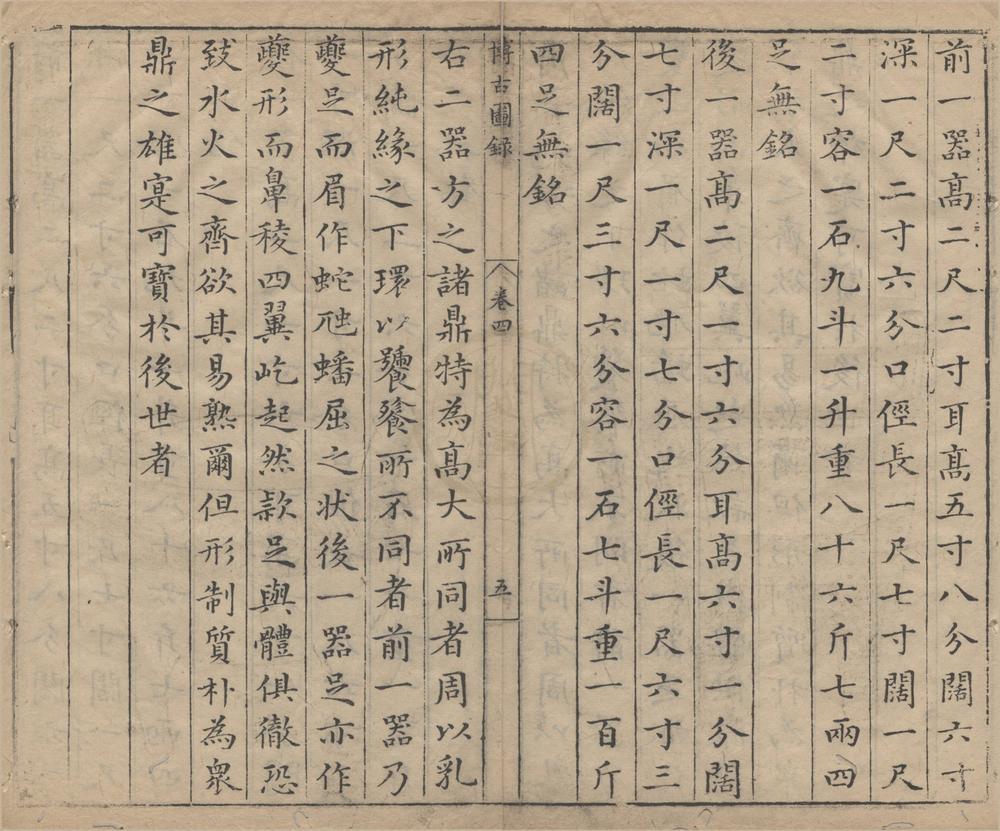 前一器髙二尺二寸耳髙五寸八分闊六寸
深一尺二寸六分口徑長一尺七寸闊一尺
二寸容一石九斗一升重八十六斤七兩四
足無銘
後一器髙二尺一寸六分耳髙六寸一分闊
七寸深一尺一寸七分口徑長一尺六寸三
分闊一尺三寸六分容一石七斗重一百斤
四足無銘
博古圖録 卷四 五
右二器方之諸鼎特為髙大所同者周以乳
形純緣之下環以饕餮所不同者前一器乃
夔足而眉作蛇虺蟠屈之状後一器足亦作
夔形而鼻稜四翼屹起然款足與體俱徹恐
致水火之齊欲其易熟爾但形制質朴為衆
鼎之雄寔可寶於後世者